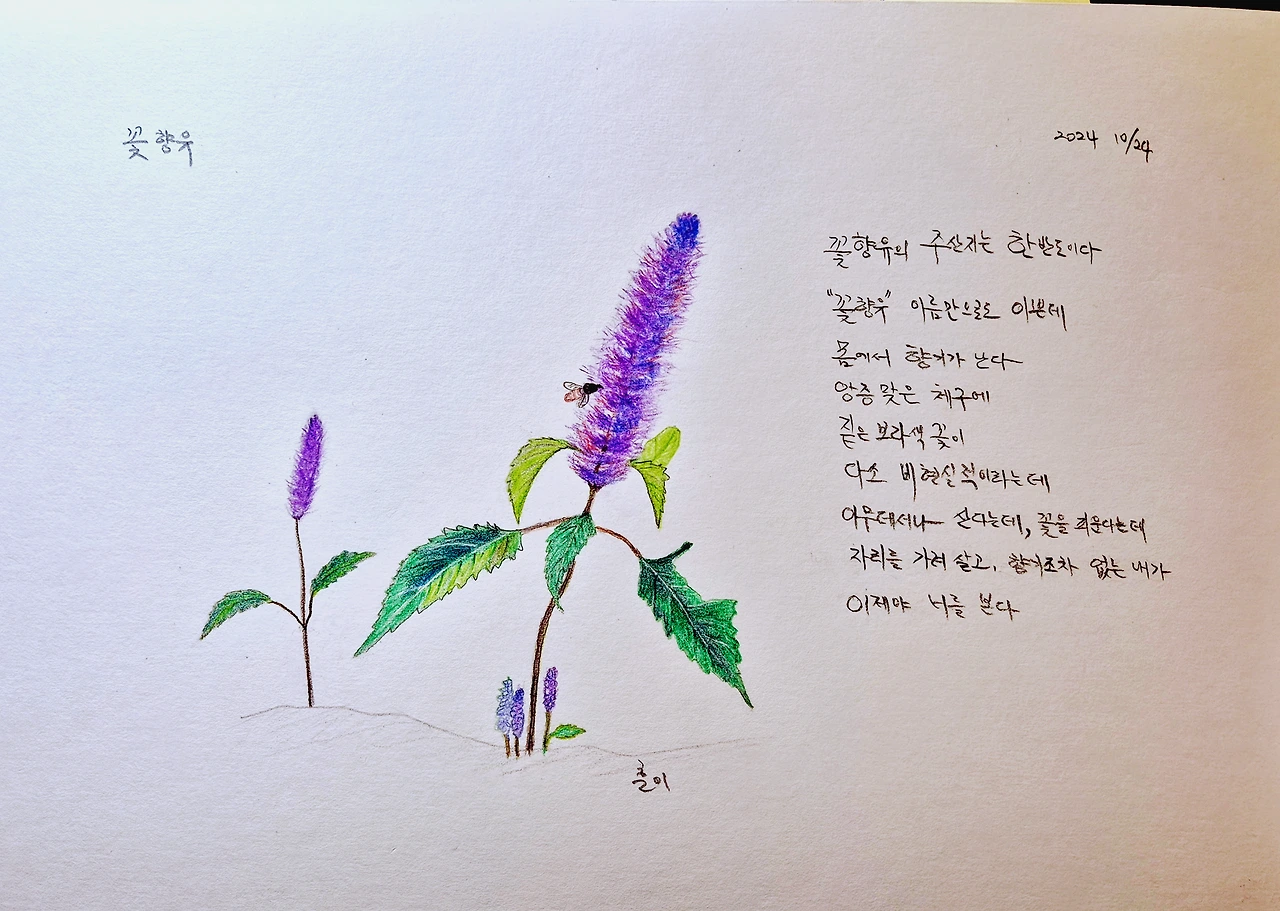 꽃향유
2024 10/24
꽃향유의 주산지는 한반도이다
"꽃향유" 이름만으로도 이쁜데
몸에서 향기가 난다
앙증 맞은 체구에
짙은 보라색 꽃이
다소 비현실적이라는데
아무데서나 산다는데, 꽃을 피운다는데
자리를 가려 살고, 향기조차 없는 내가
이제야 너를 본다